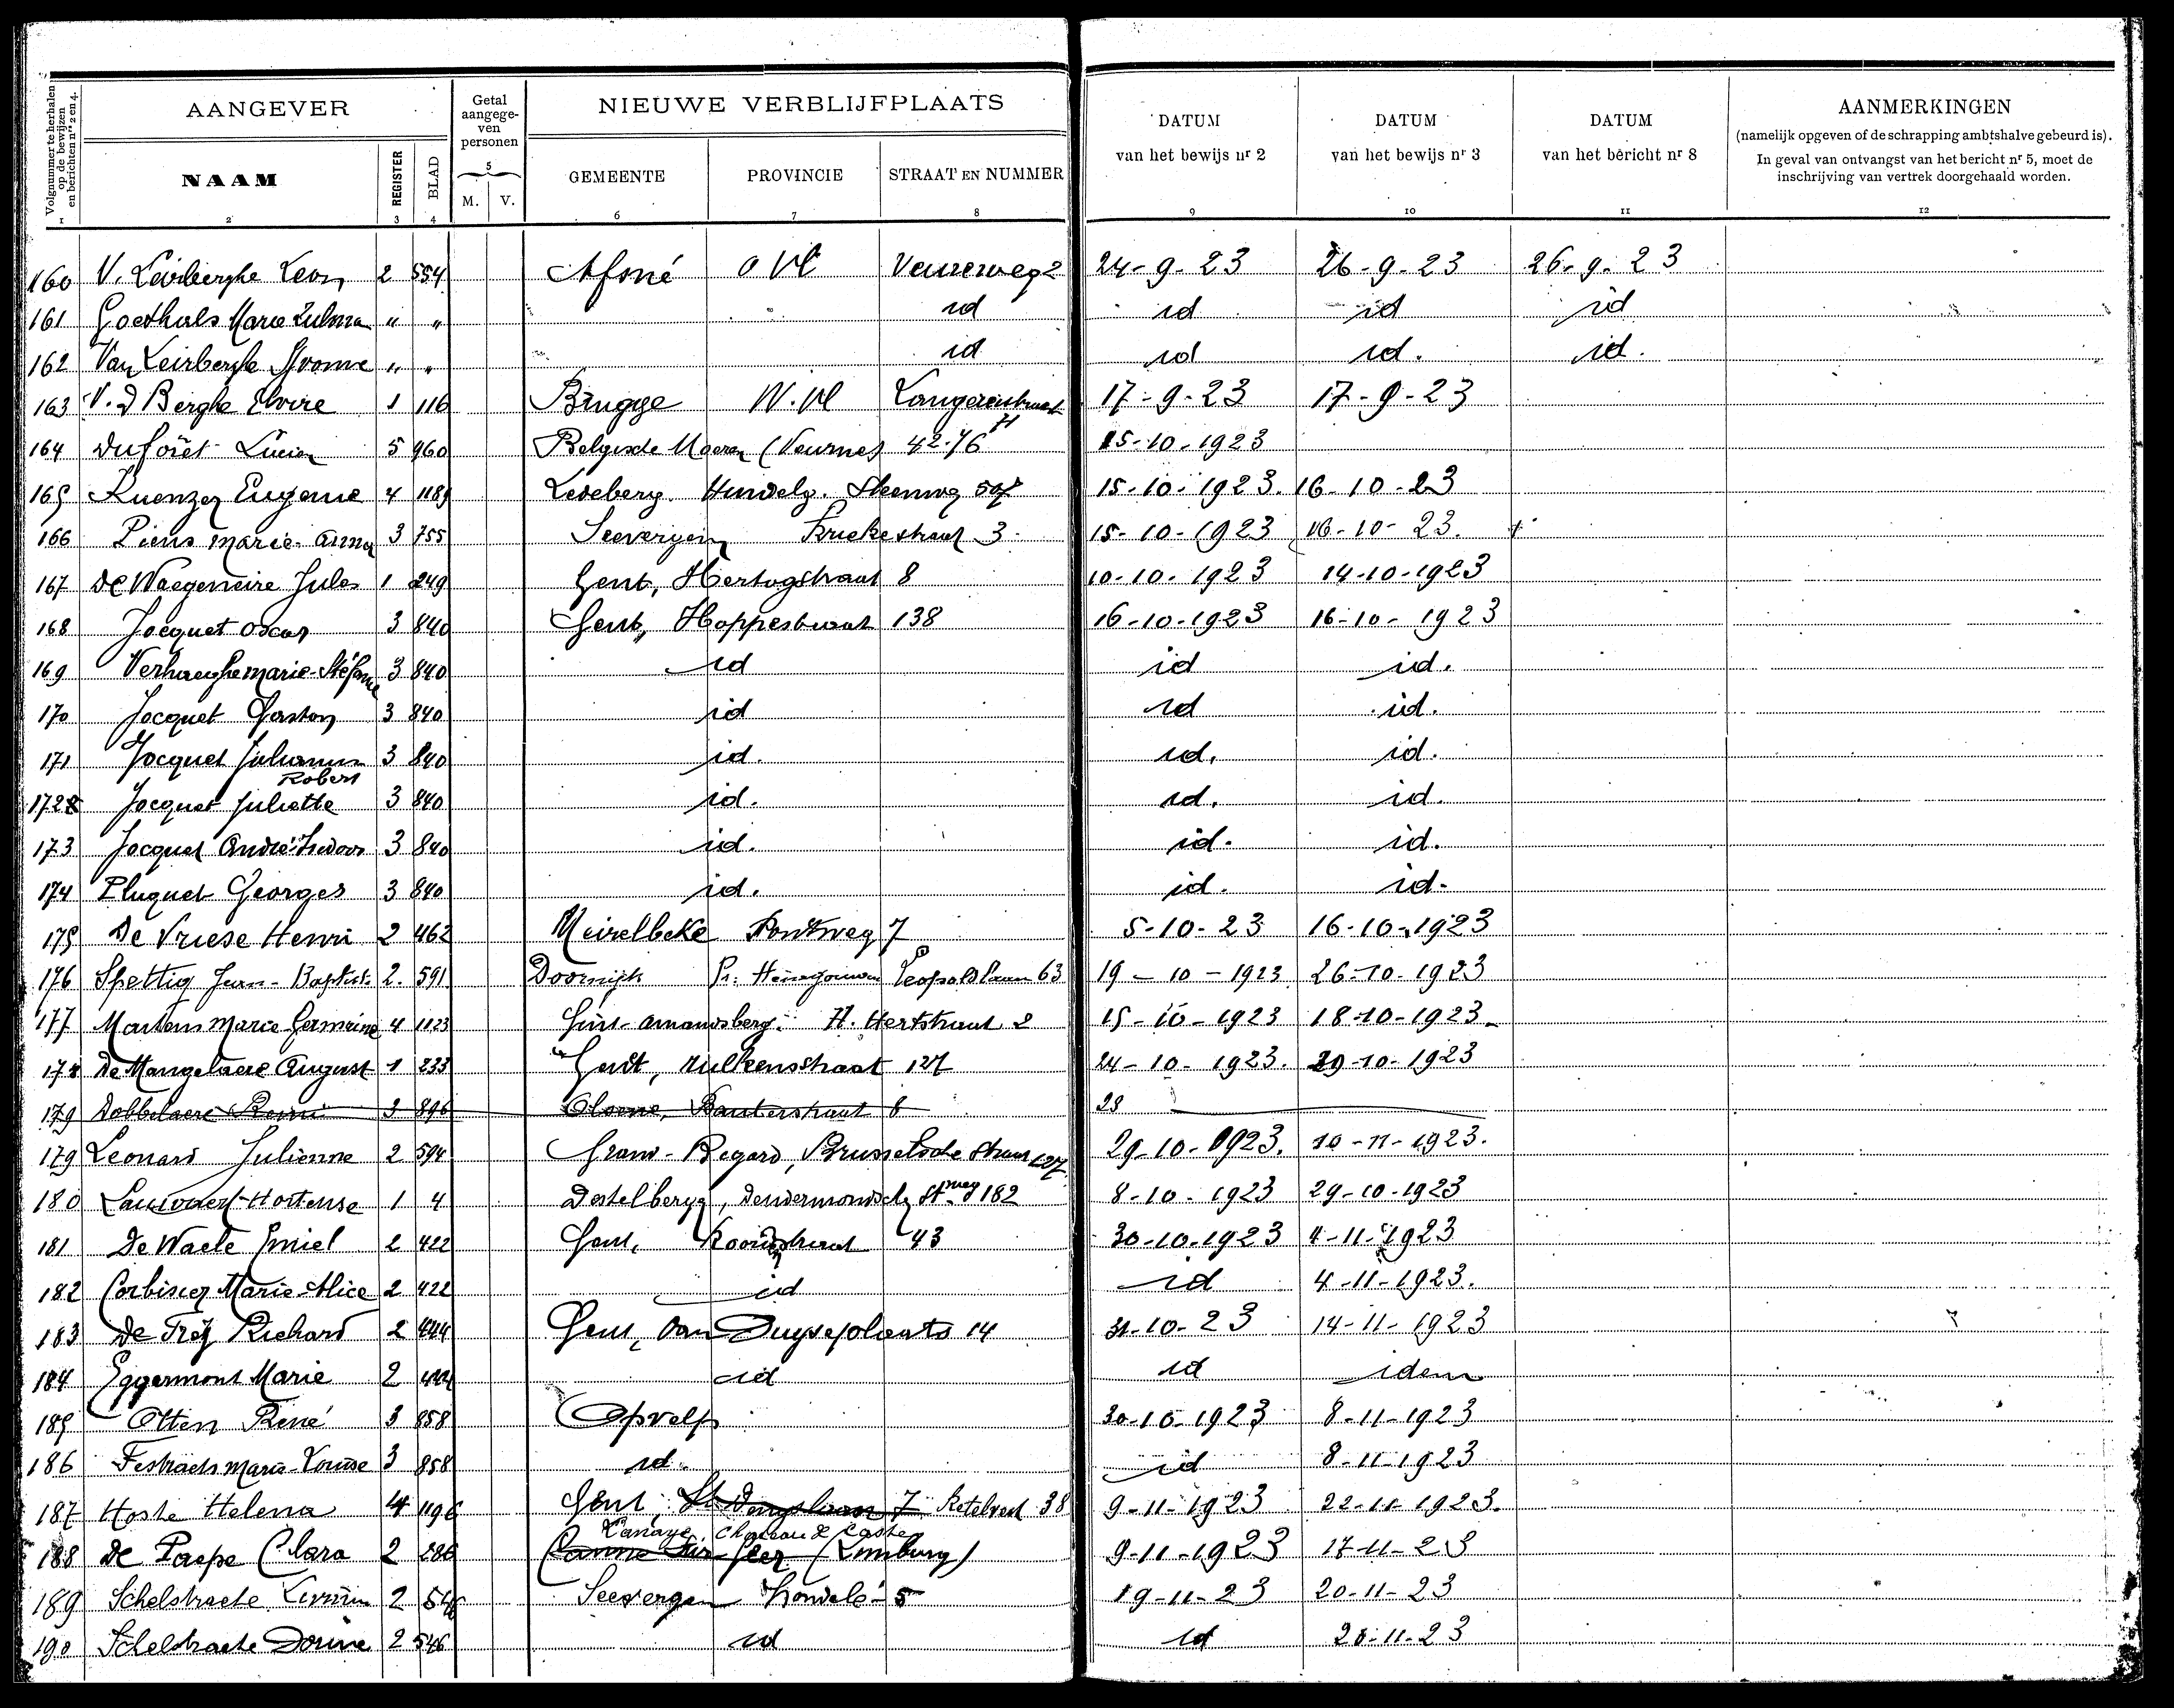 Volgnummer te herhalen op de bewijzen en berichten nrs 2 en 4.
AANGEVER
NAAM
REGISTER
BLAD
Getal aangegeven personen
5
M. V.
NIEUWE VERBLIJFPLAATS
GEMEENTE PROVINCIE STRAAT EN NUMMER
DATUM van het bewijs nr 2
DATUM van het bewijs nr 3
DATUM van het bericht nr 8
AANMERKINGEN
(namelijk opgeven of de schrapping ambtshalve gebeurd is).
In geval van ontvangst van het bericht nr 5, moet de
inschrijving van vertrek doorgehaald worden.
1 2 3 4 6 7 8 9 10 11 12
160 V. Leirberghe Leon 2 554 Afsné O Vl Veureweg 2 24-9-23 26-9-23 26-9-23
161 Goethals Marie Zulma " " id id id id
162 Van Leirberghe Yvonne " " id id id. id.
163 V. d Berghe Elvire 1 116 Brugge W. Vl 17-9-23 17-9-23
164 Duforêt Lucien 5 960 Belgische Moeren (Veurne) 42.76 15-10-1923
165 Kuenzen Eugenie 4 1189 Ledeberg Hundelg. Steenweg 507 15-10-1923. 16-10-23
166 Piens Marie-Anna 3 755 Seevergem Kriekestraat 3. 15-10-1923 16-10-23.
167 De Waegeneire Jules 1 249 Gent, Hertogstraat 8 10-10-1923 14-10-1923
168 Jocquet Oscar 3 840 Gent, Hoppestraat 138 16-10-1923 16-10-1923
169 Verhaeghe Marie-Stéfanie 3 840 id id id.
170 Jocquet Gaston 3 840 id id id.
171 Jocquet Julienne 3 840 id. id. id.
Robert
172 Jocquet Juliette 3 840 id. id. id.
173 Jocquet André Isidoor 3 840 id. id. id.
174 Pluquet Georges 3 840 id. id. id.
175 De Vriese Henri 2 462 Meirelbeke Pontweg 7 5-10-23 16-10-1923
176 Spettig Jean-Baptist. 2. 591 Doornijk Pr. Henegouwen Leopoldlaan 63 19-10-1923 26-10-1923
177 Martens Marie Germaine 4 1123 Sint-Amandsberg. H. Hertstraat 2 15-10-1923 18-10-1923
178 De Mangelaere August 1 233 Gent, Zulkensstraat 127 24-10-1923. 29-10-1923
179 Dobbelaere Remi 3 896 8 28
179 Leonard Julienne 2 594 Grand-Bigard, Brusselsche Straat 127 29-10-1923. 10-11-1923.
180 Hortense 1 4 Destelbergen, Dendermondsch St.weg 182 8-10-1923 29-10-1923
181 De Waele Emiel 2 422 Gent, 43 30-10-1923 4-11-1923
182 Corbisier Marie-Alice 2 422 id id 4-11-1923.
183 De Frey Richard 2 444 Gent, Van Duyseplaats 14 31-10-23 14-11-1923
184 Eggermont Marie 2 444 id id idem
185 Otten René 3 858 Opvelp 30-10-1923 8-11-1923
186 Festraets Marie-Louise 3 858 id. id 8-11-1923
187 Hoste Helena 4 1196 Gent, St Denijslaan 7 Ketelvest 38 9-11-1923 22-11-1923.
Kanaye, Chateau de Caster
188 De Paepe Clara 2 286 Canne sur Geer (Limburg) 9-11-1923 17-11-23
189 Schelstraete 2 546 Seevergem 5 19-11-23 20-11-23
190 Schelstraete 2 546 id id 20-11-23